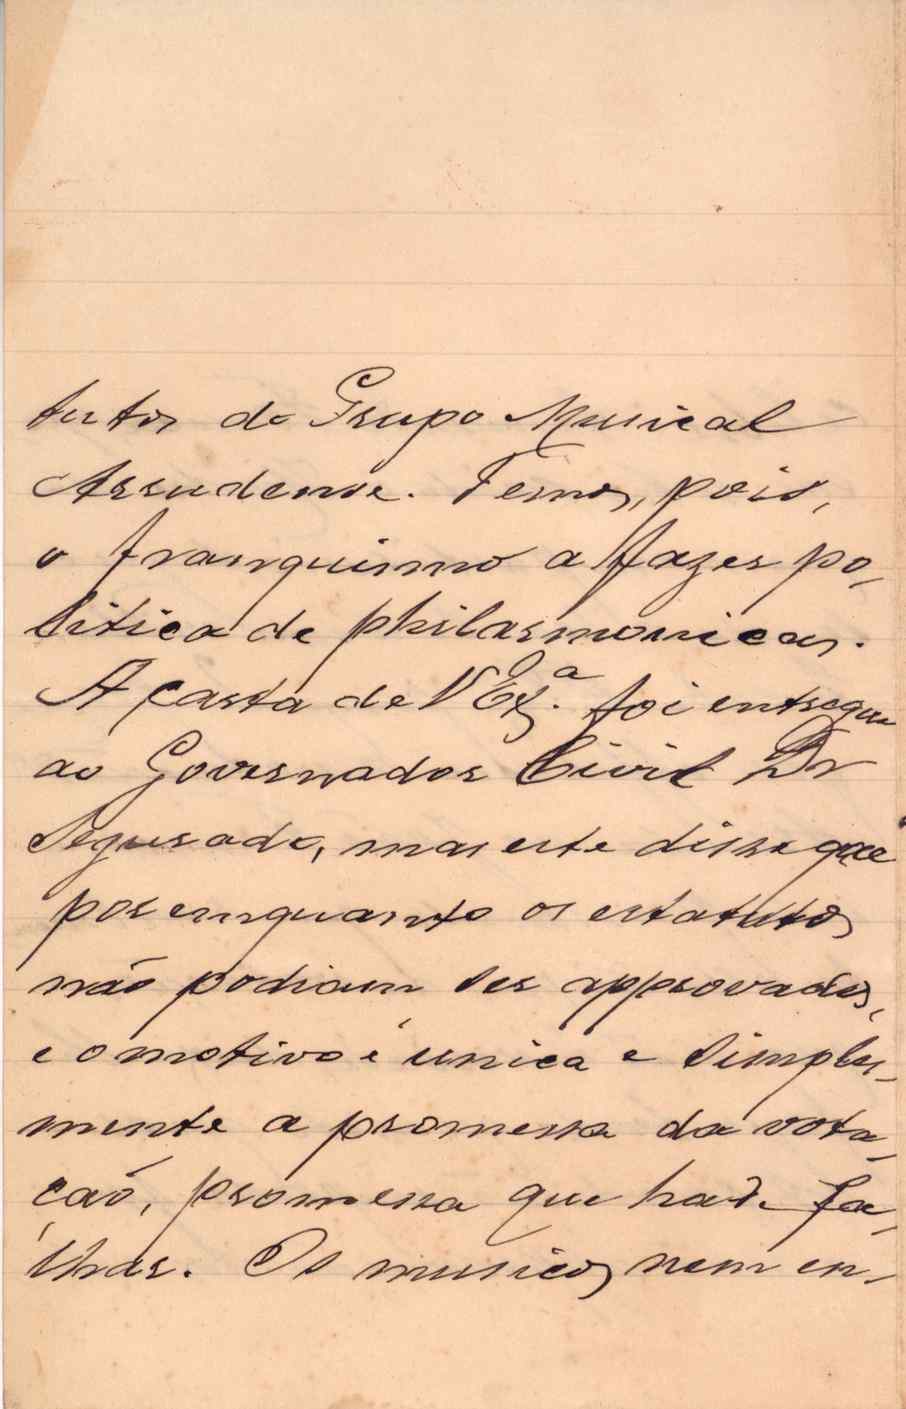 tutos do Grupo Musical
Arrudense. Temos, pois,
o franquismo a fazer po-
litica de philarmonicas.
A carta de V Exª. foi entregue
ao Governador Civil Dr
Segurado, mas este disse que
por emquanto os estatutos
não podiam ser approvados,
e o motivo é unica e simples-
mente a promessa da vota-
ção, promessa que hade fa-
lhar. Os musicos nem en-